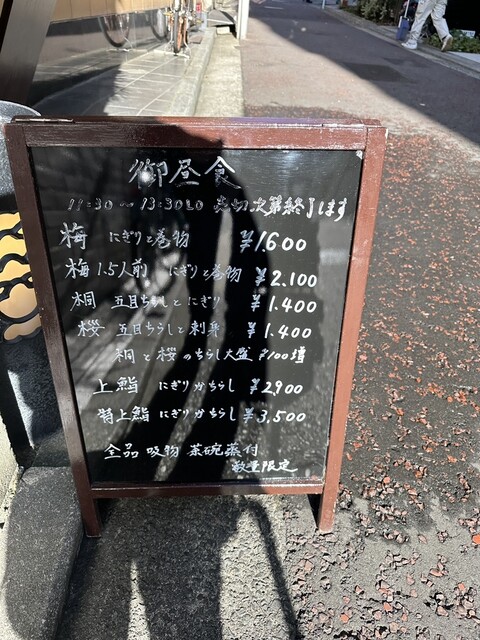 御昼食
11:30 〜 13:30LO 売切次第終了します
梅 にぎりと巻物 ¥1.600
梅1.5人前 にぎりと巻物 ¥2.100
桐 五目ちらしとにぎり ¥1.400
桜 五目ちらしと刺身 ¥1.400
桐と桜のちらし大盛 ¥100増
上鮨 にぎりかちらし ¥2,900
特上鮨 にぎりかちらし ¥3,500
全品 吸物 茶碗蒸付
数量限定